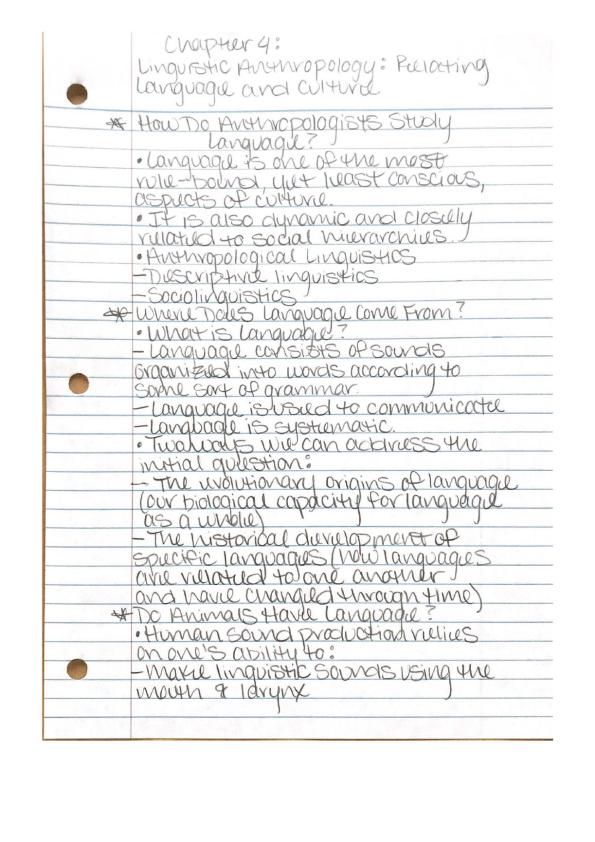 Chapter 4:
Linguistic Anthropology: Relating
Language and Culture
* How Do Anthropologists Study
Language?
• Language is one of the most
rule-bound, yet least conscious,
aspects of culture.
• It is also dynamic and closely
related to social hierarchies.
• Anthropological Linguistics
- Descriptive linguistics
- Sociolinguistics
* Where Does Language Come From?
• What is Language?
- Language consists of sounds
organized into words according to
some sort of grammar.
- Language is used to communicate
- Language is systematic.
• Two ways we can address the
initial question:
- The evolutionary origins of language
(our biological capacity for language
as a whole)
- The historical development of
specific languages (how languages
are related to one another
and have changed through time)
* Do Animals Have Language?
• Human sound production relies
on one's ability to:
- Make linguistic sounds using the
mouth & larynx